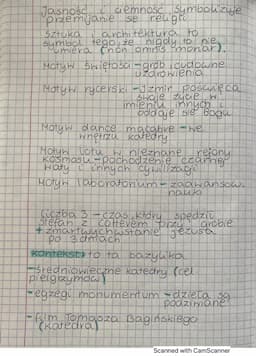 Jasność i ciemność symbolizuje
przemijanie się religii
Sztuka i architektura to
symbol tego, że nigdy to nie
umiera (non omnis moriar).
Motyw świętości – grób i cudowne
uzdrowienia
Motyw rycerski – Izmir poświęca
swoje życie w
imieniu innych i
oddaje się Bogu
Motyw dance macabre – we
wnętrzu katedry
Motyw lotu w nieznane rejony
kosmosu – pochodzenie czarnej
waty i innych cywilizacji
Motyw laboratorium – zaawansow.
nauka
Liczba 3 – czas, który spędził
stefan z cotterem przy grobie
+ zmartwychwstanie Jezusa
po 3 dniach
kontekst: to ta bazylika
– średniowieczne katedry (cel
pielgrzymów)
– egzegi monumentum – dzieła są
podziwiane
– film Tomasza Bagińskiego
(katedra)
Scanned with CamScanner